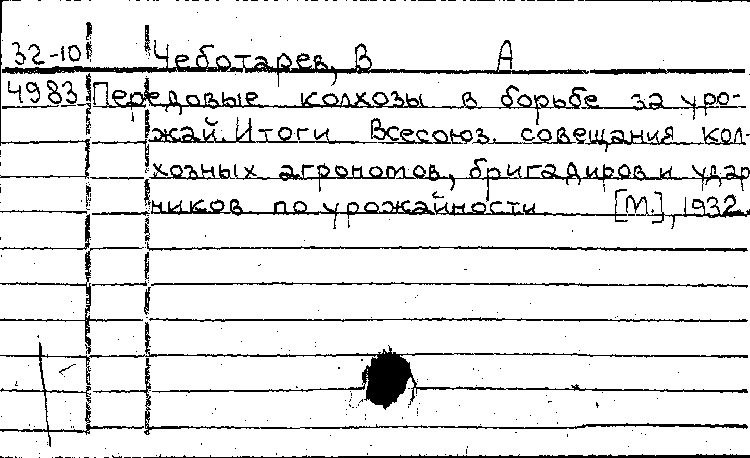 32-10 Чеботарев, В А
4983 Передовые колхозы в борьбе за уро-
жай. Итоги Всесоюз. совещания кол-
хозных агрономов, бригадиров и удар
ников по урожайности [М.], 1932.